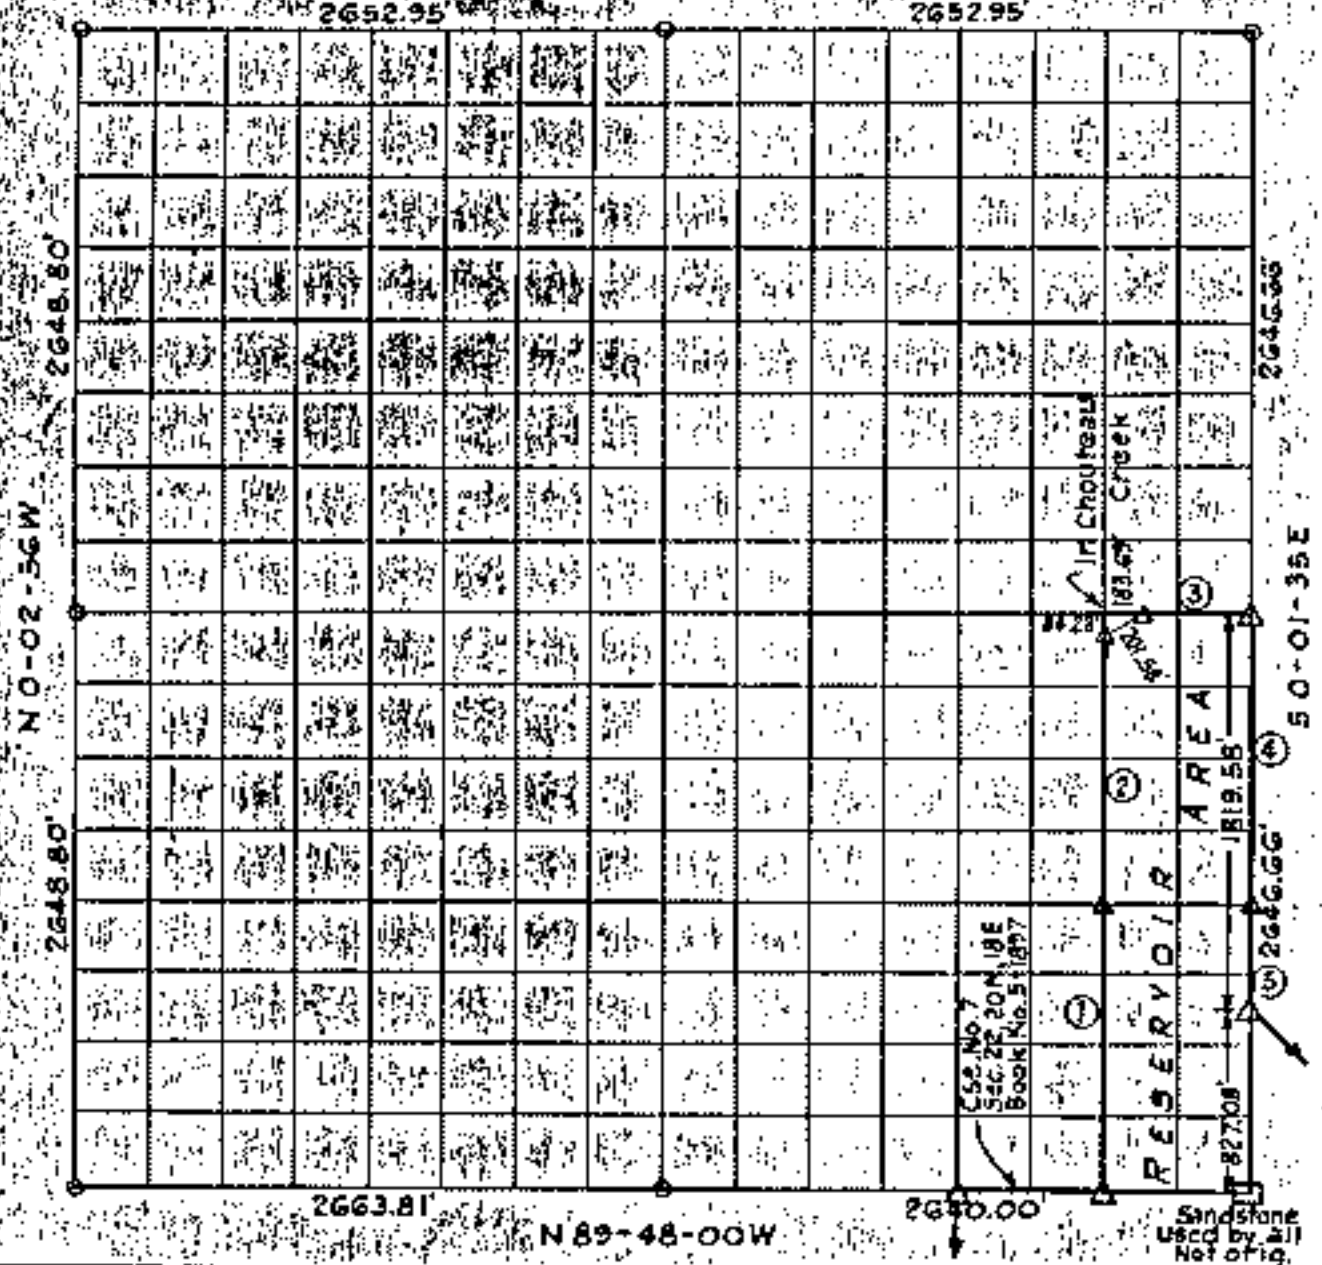 2652.95'
2652.95'
2648.80'
N 0-02-56W
2648.80'
2646.66'
S 0-01-35E
2646.66'
In Chouteau
Creek
183.49'
84.28'
201.56'
③
④
②
①
⑤
RESERVOIR AREA
1819.58'
827.08'
CSE. No. 7
Sec. 22 20N 18E
Book No. 5-1897
2663.81'
2640.00'
N 89-48-00W
Sandstone
Used by all
Not orig.